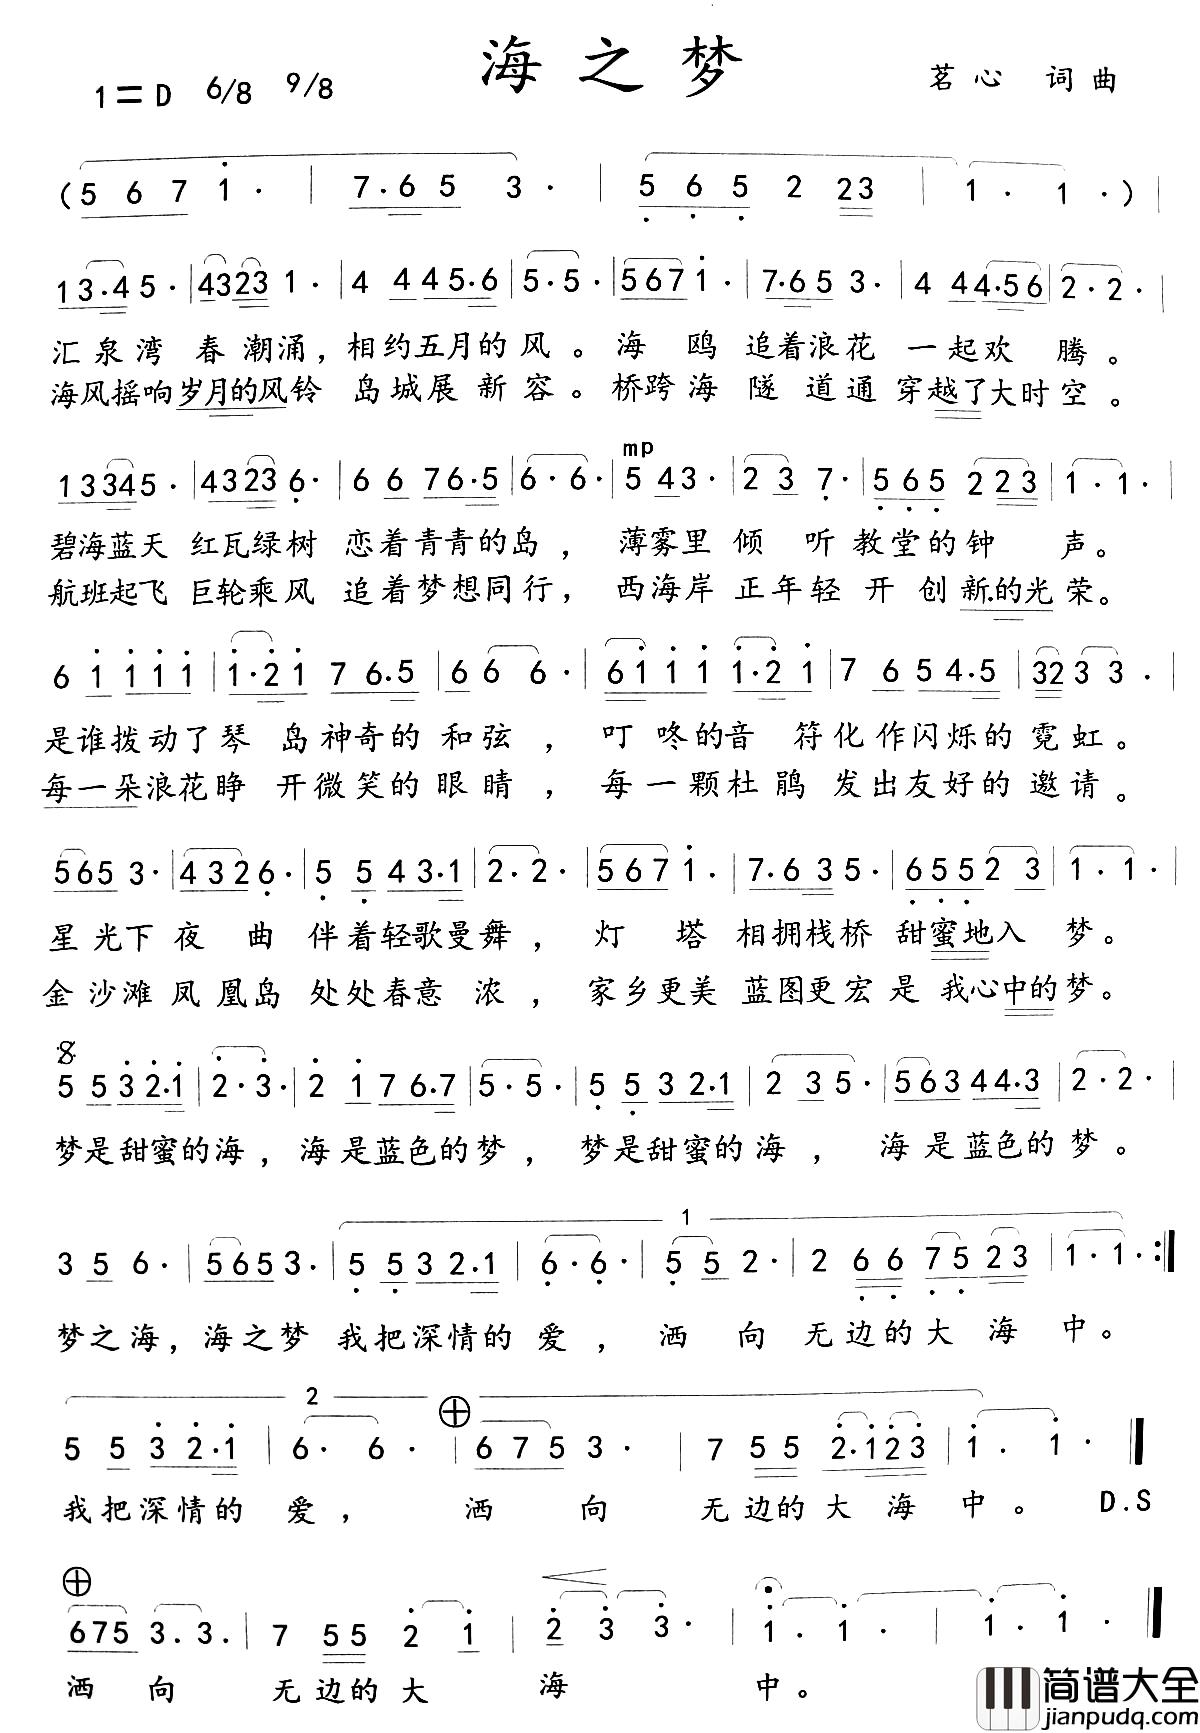 海之梦
1=D 6/8 9/8 茗心 词曲
(5 6 7 1· | 7·6 5 3· | 5 6 5 2 23 | 1· 1·) |
13·45· | 4323 1· | 4 4 45·6 | 5·5· | 567 1· | 7·65 3· | 4 44·56 | 2·2· |
汇泉湾 春潮涌，相约五月的风。海 鸥 追着浪花 一起欢 腾。
海风摇响岁月的风铃 岛城展新容。桥跨海隧道通穿越了大时空。
mp
13345· | 4323 6· | 6 6 76·5 | 6·6· | 5 43· | 2 3 7· | 565 2 23 | 1·1· |
碧海蓝天 红瓦绿树 恋着青青的岛，薄雾里 倾 听 教堂的钟 声。
航班起飞 巨轮乘风 追着梦想同行，西海岸 正年轻 开 创 新的光荣。
6 1 1 1 1 | 1·2 1 7 6·5 | 6 6 6· | 6 1 1 1 1·2 1 | 7 6 54·5 | 323 3· |
是谁拨动了琴 岛神奇的 和弦，叮 咚的音 符化作闪烁的霓虹。
每一朵浪花睁 开微笑的眼睛，每一颗杜鹃 发出友好的邀请。
565 3· | 4 3 2 6· | 5 5 43·1 | 2·2· | 567 1· | 7·6 35· | 6 5 5 2 3 | 1·1· |
星光下夜 曲 伴着轻歌曼舞，灯 塔 相拥栈桥 甜蜜地入 梦。
金沙滩凤凰岛 处处春意 浓，家乡更美 蓝图更宏是 我心中的梦。
5 5 3 2·1 | 2·3· | 2 1 7 6·7 | 5·5· | 5 5 3 2·1 | 2 35· | 56344·3 | 2·2· |
梦是甜蜜的海，海是蓝色的梦，梦是甜蜜的海，海是蓝色的梦。
1
3 5 6· | 5653· | 5 5 3 2·1 | 6·6· | 5 5 2· | 2 6 6 7 5 23 | 1·1· :|
梦之海，海之梦 我把深情的 爱，洒 向 无边的大 海 中。
2
5 5 3 2·1 | 6· 6· | 675 3· | 7 55 2·123 | 1· 1· ||
我把深情的 爱，洒 向 无边的大 海 中。D.S
675 3·3· | 7 55 2 1 | 2 3 3· | 1·1· | 1·1· ||
洒 向 无边的大 海 中。
简谱大全
jianpudq.com